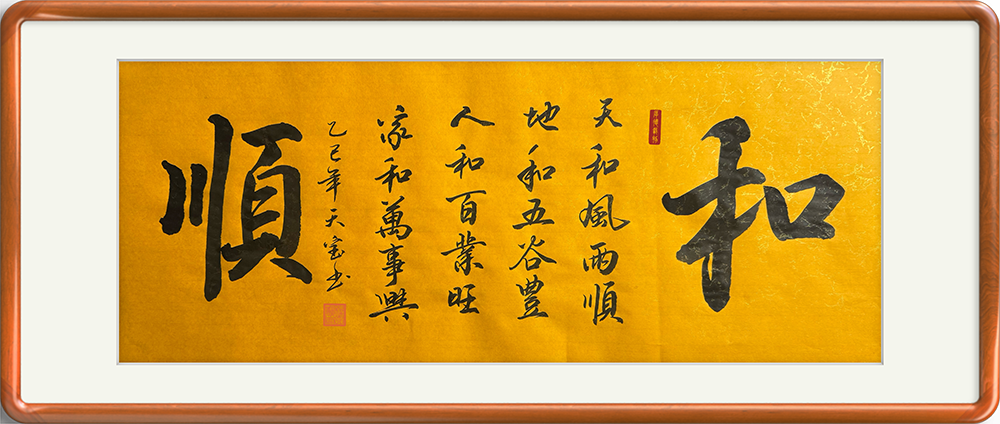 和
天和風雨順
地和五谷豐
人和百業旺
家和萬事興
乙巳年天宝书
順